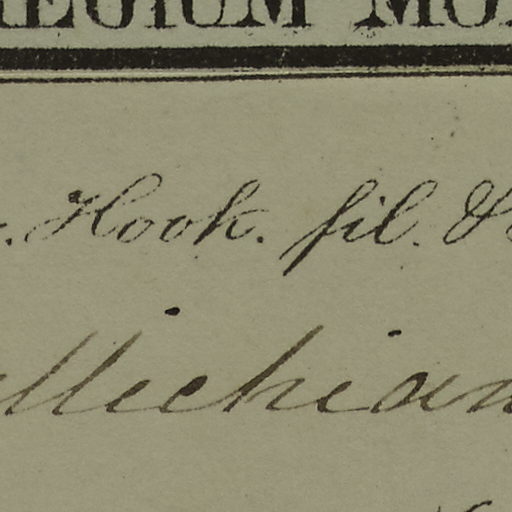 REGIUM MO
. Hook. fil. &
llichian